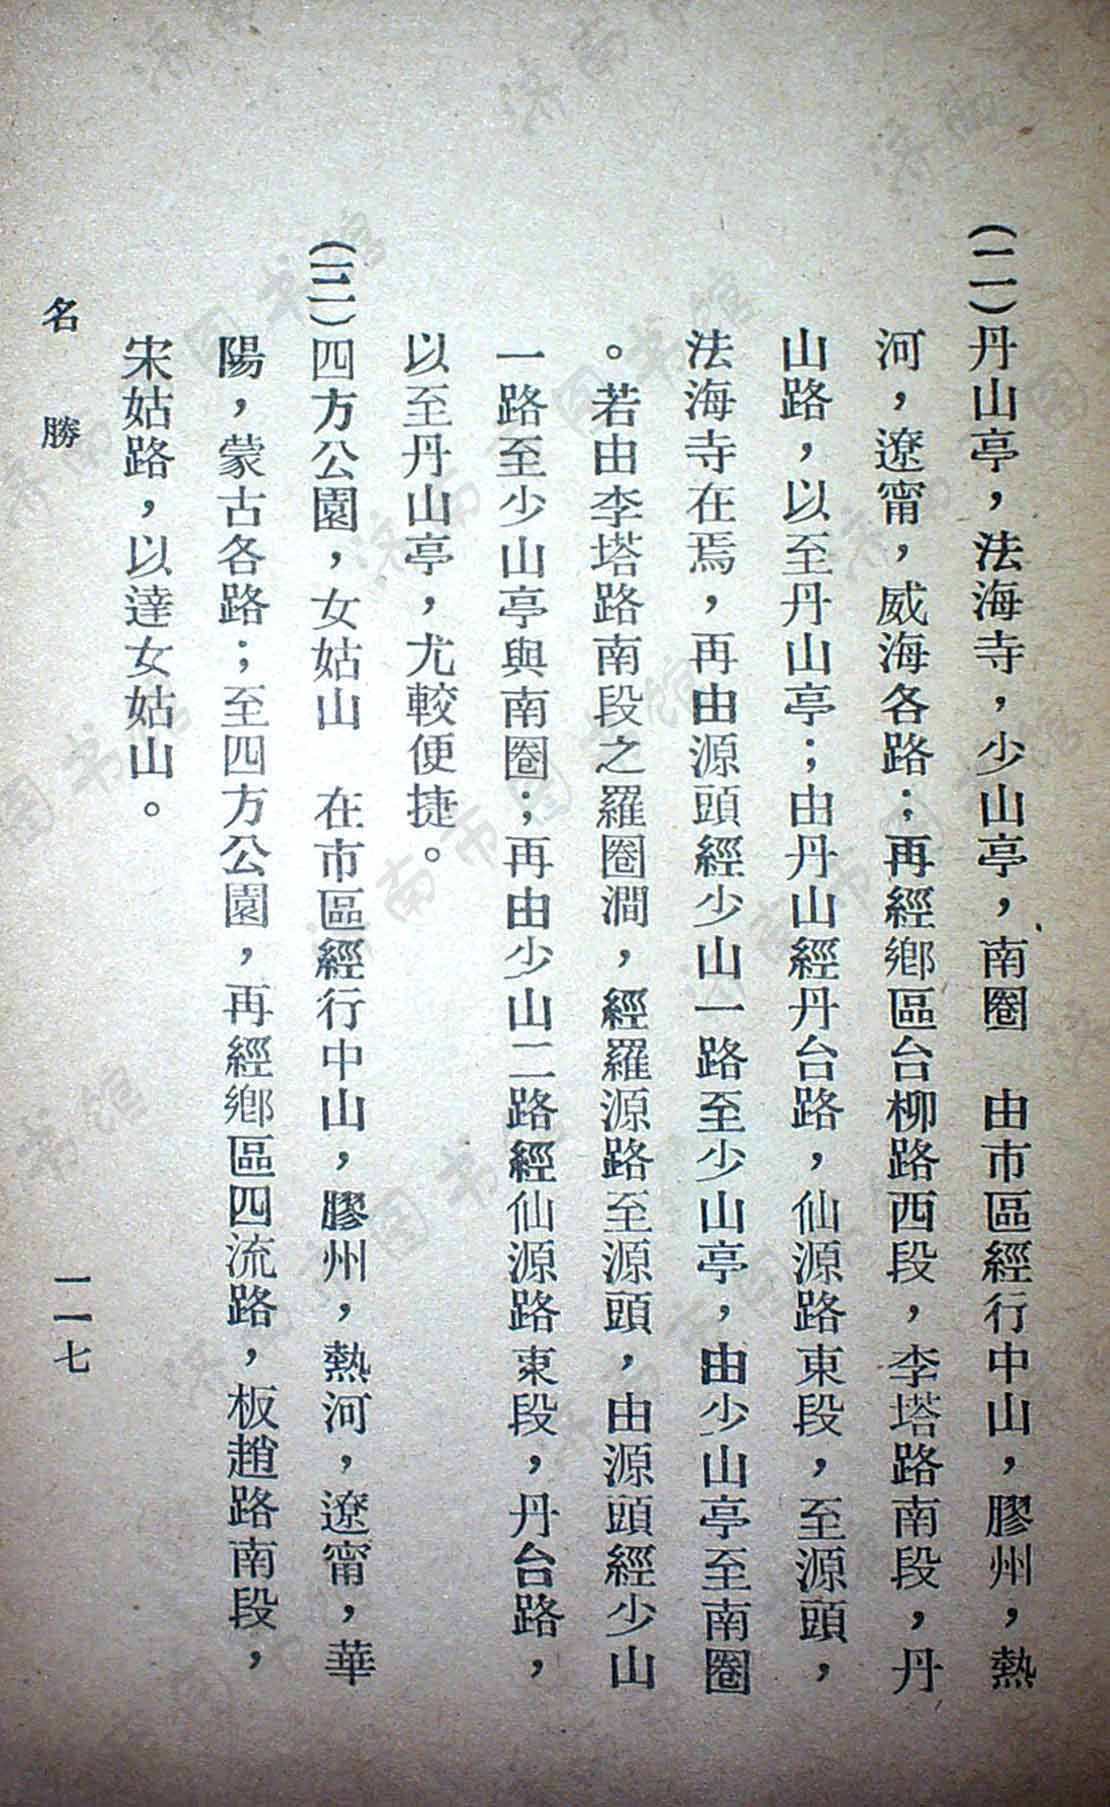 (二)丹山亭，法海寺，少山亭，南圈　由市區經行中山，膠州，熱
河，遼甯，威海各路；再經鄉區台柳路西段，李塔路南段，丹
山路，以至丹山亭；由丹山經丹台路，仙源路東段，至源頭，
法海寺在焉，再由源頭經少山一路至少山亭，由少山亭至南圈
。若由李塔路南段之羅圈澗，經羅源路至源頭，由源頭經少山
一路至少山亭與南圈；再由少山二路經仙源路東段，丹台路，
以至丹山亭，尤較便捷。
(三)四方公園，女姑山　在市區經行中山，膠州，熱河，遼甯，華
陽，蒙古各路；至四方公園，再經鄉區四流路，板趙路南段，
宋姑路，以達女姑山。
名勝　一一七
济南市图书馆